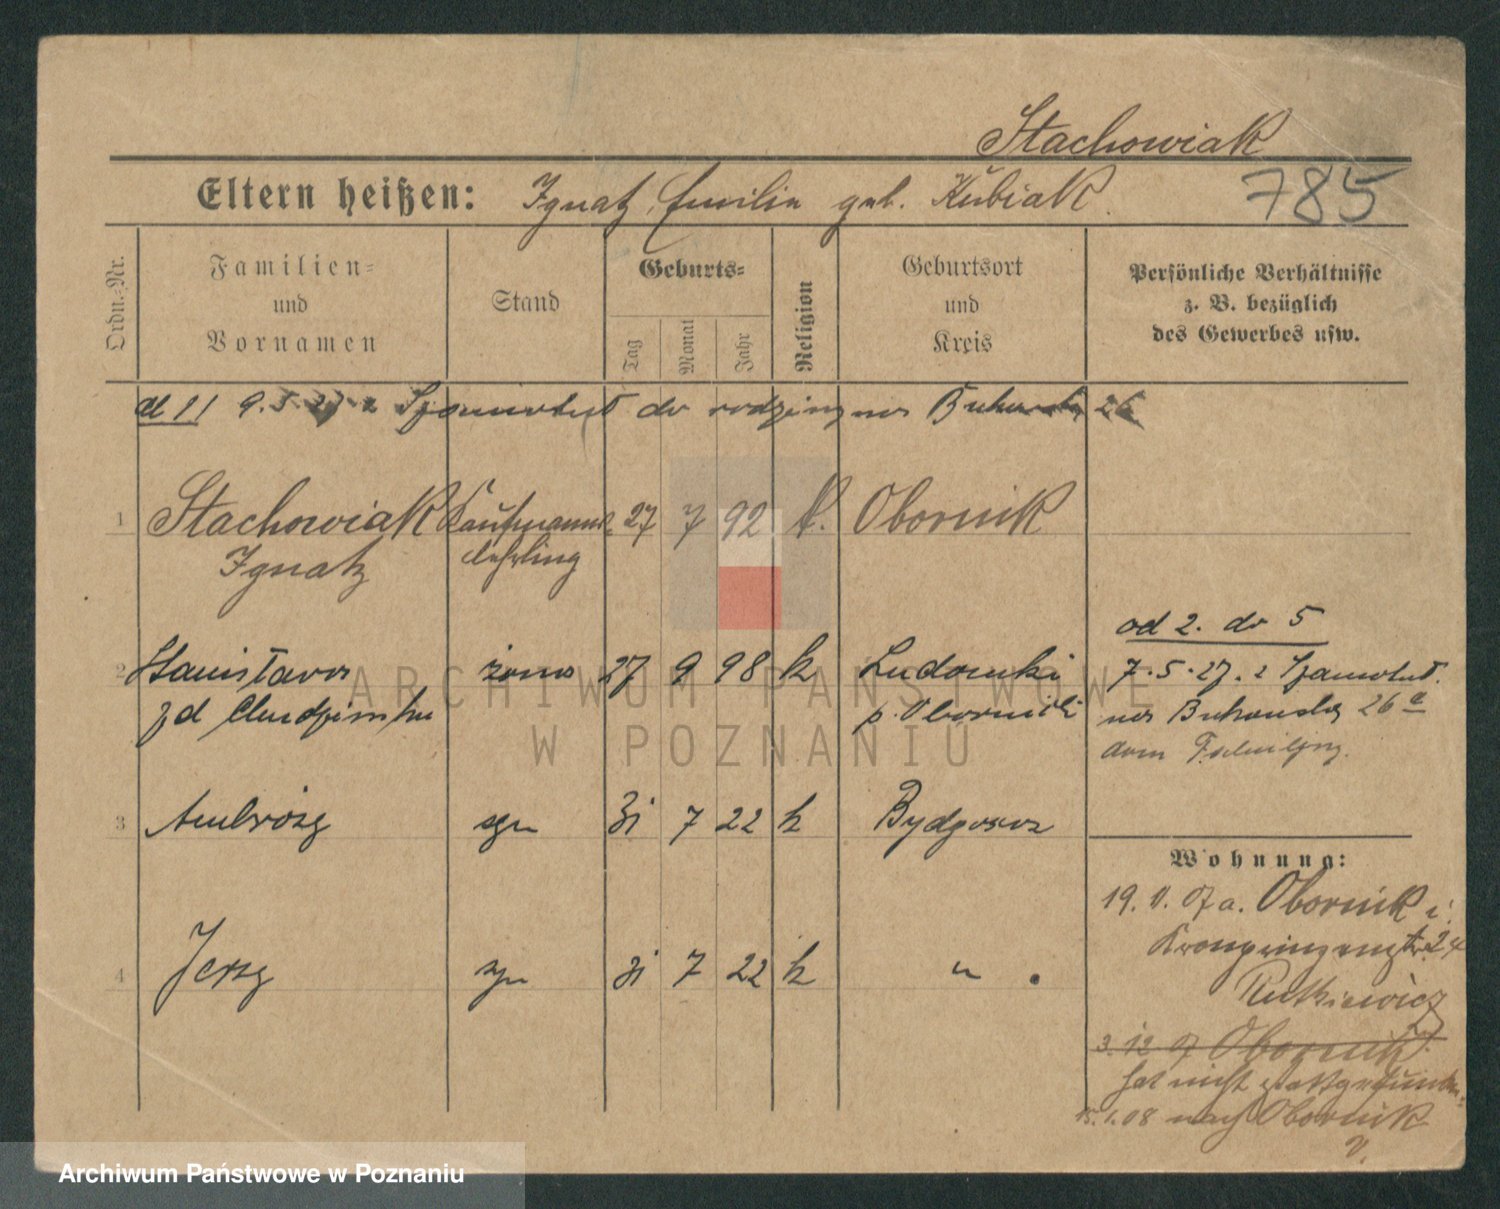 Stachowiak
Eltern heißen: Ignatz, Emilia geb. Kubiak.
785
Ordn.-Nr.
Familien-
und
Vornamen
Stand
Geburts-
Tag
Monat
Jahr
Religion
Geburtsort
und
Kreis
Persönliche Verhältnisse
z. B. bezüglich
des Gewerbes usw.
ad 11 9.5.27 z Szamotuł do rodziny na Bukowską 26
1 Stachowiak Kaufmanns 27 7 92 k. Obornik
Ignatz lehrling
od 2. do 5
2 Stanisława żona 27 9 98 k Ludomki 7.5.27. z Szamotuł.
zd p. Oborniki na Bukowską 26 a
dom
3 Ambroży syn 31 7 22 k Bydgoszcz
Wohnung:
19. 11. 07 a. Obornik i.
Kronprinzenstr. 24
Rutkiewicz
4 Jerzy syn 31 7 22 k " .
3. 12 07 Obornik.
hat nicht stattgefunden.
15. 1. 08 nach Obornik
ARCHIWUM PAŃSTWOWE
W POZNANIU
Archiwum Państwowe w Poznaniu